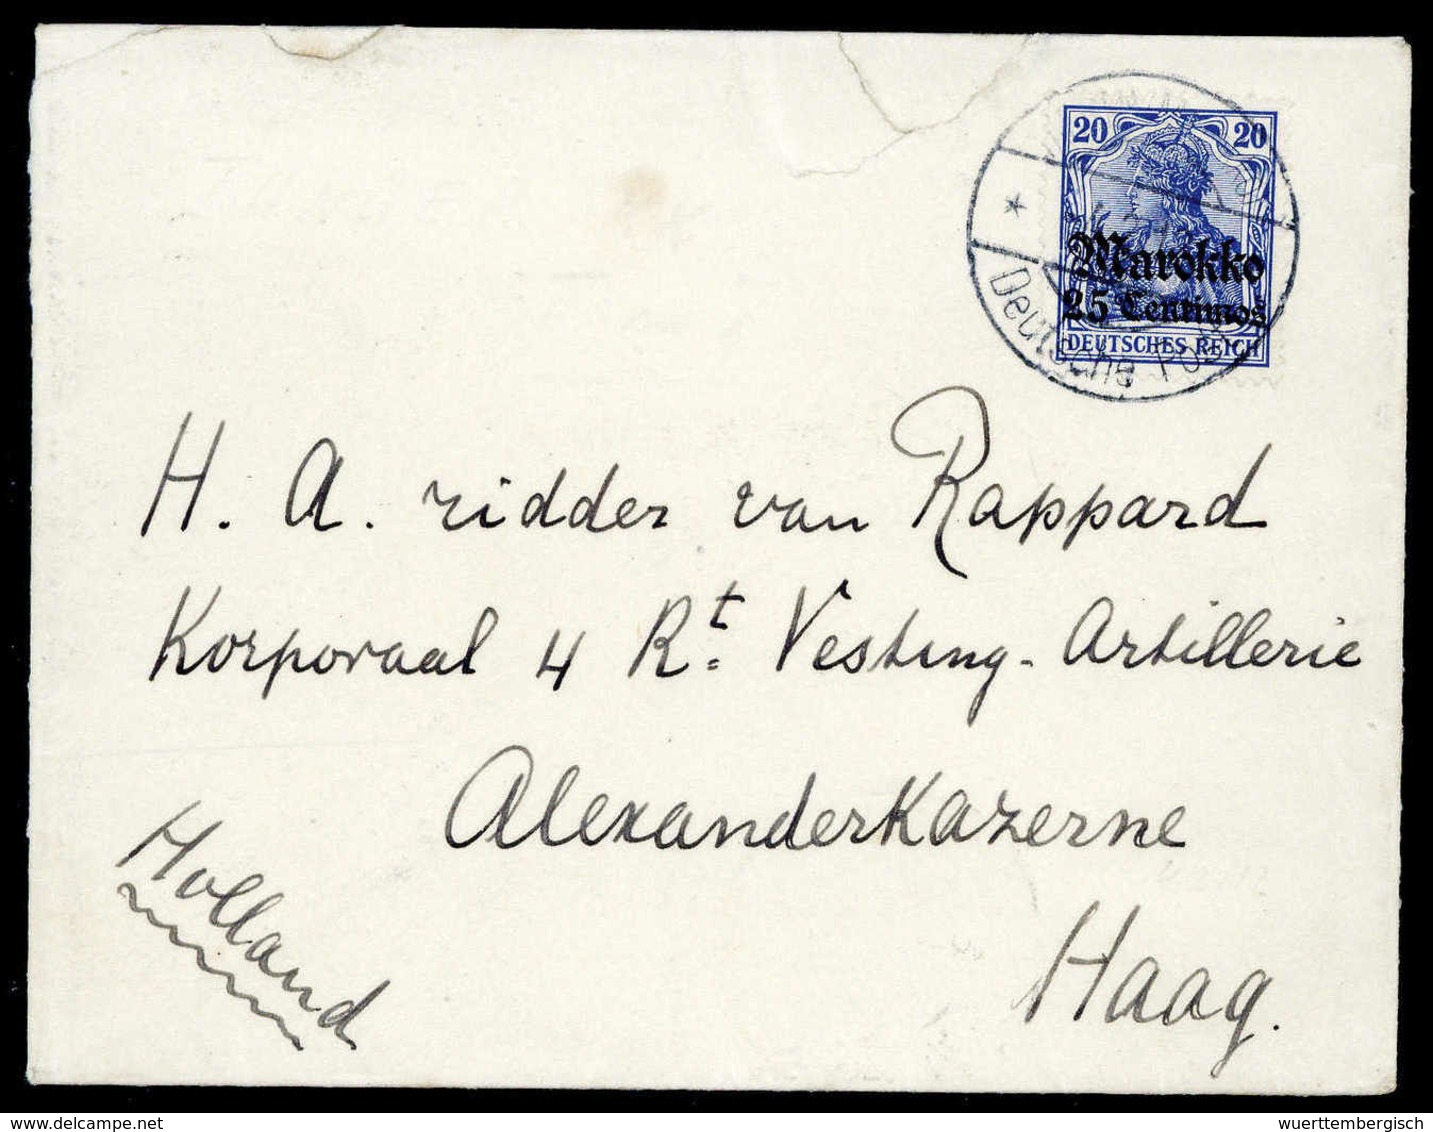 20 20
Marokko
25 Centimos
DEUTSCHES REICH
Deutsche Post
H. A. ridder van Rappard
Korporaal 4 Rt. Vesting-Artillerie
Alexanderkazerne
Haag.
Holland
wuerttembergisch